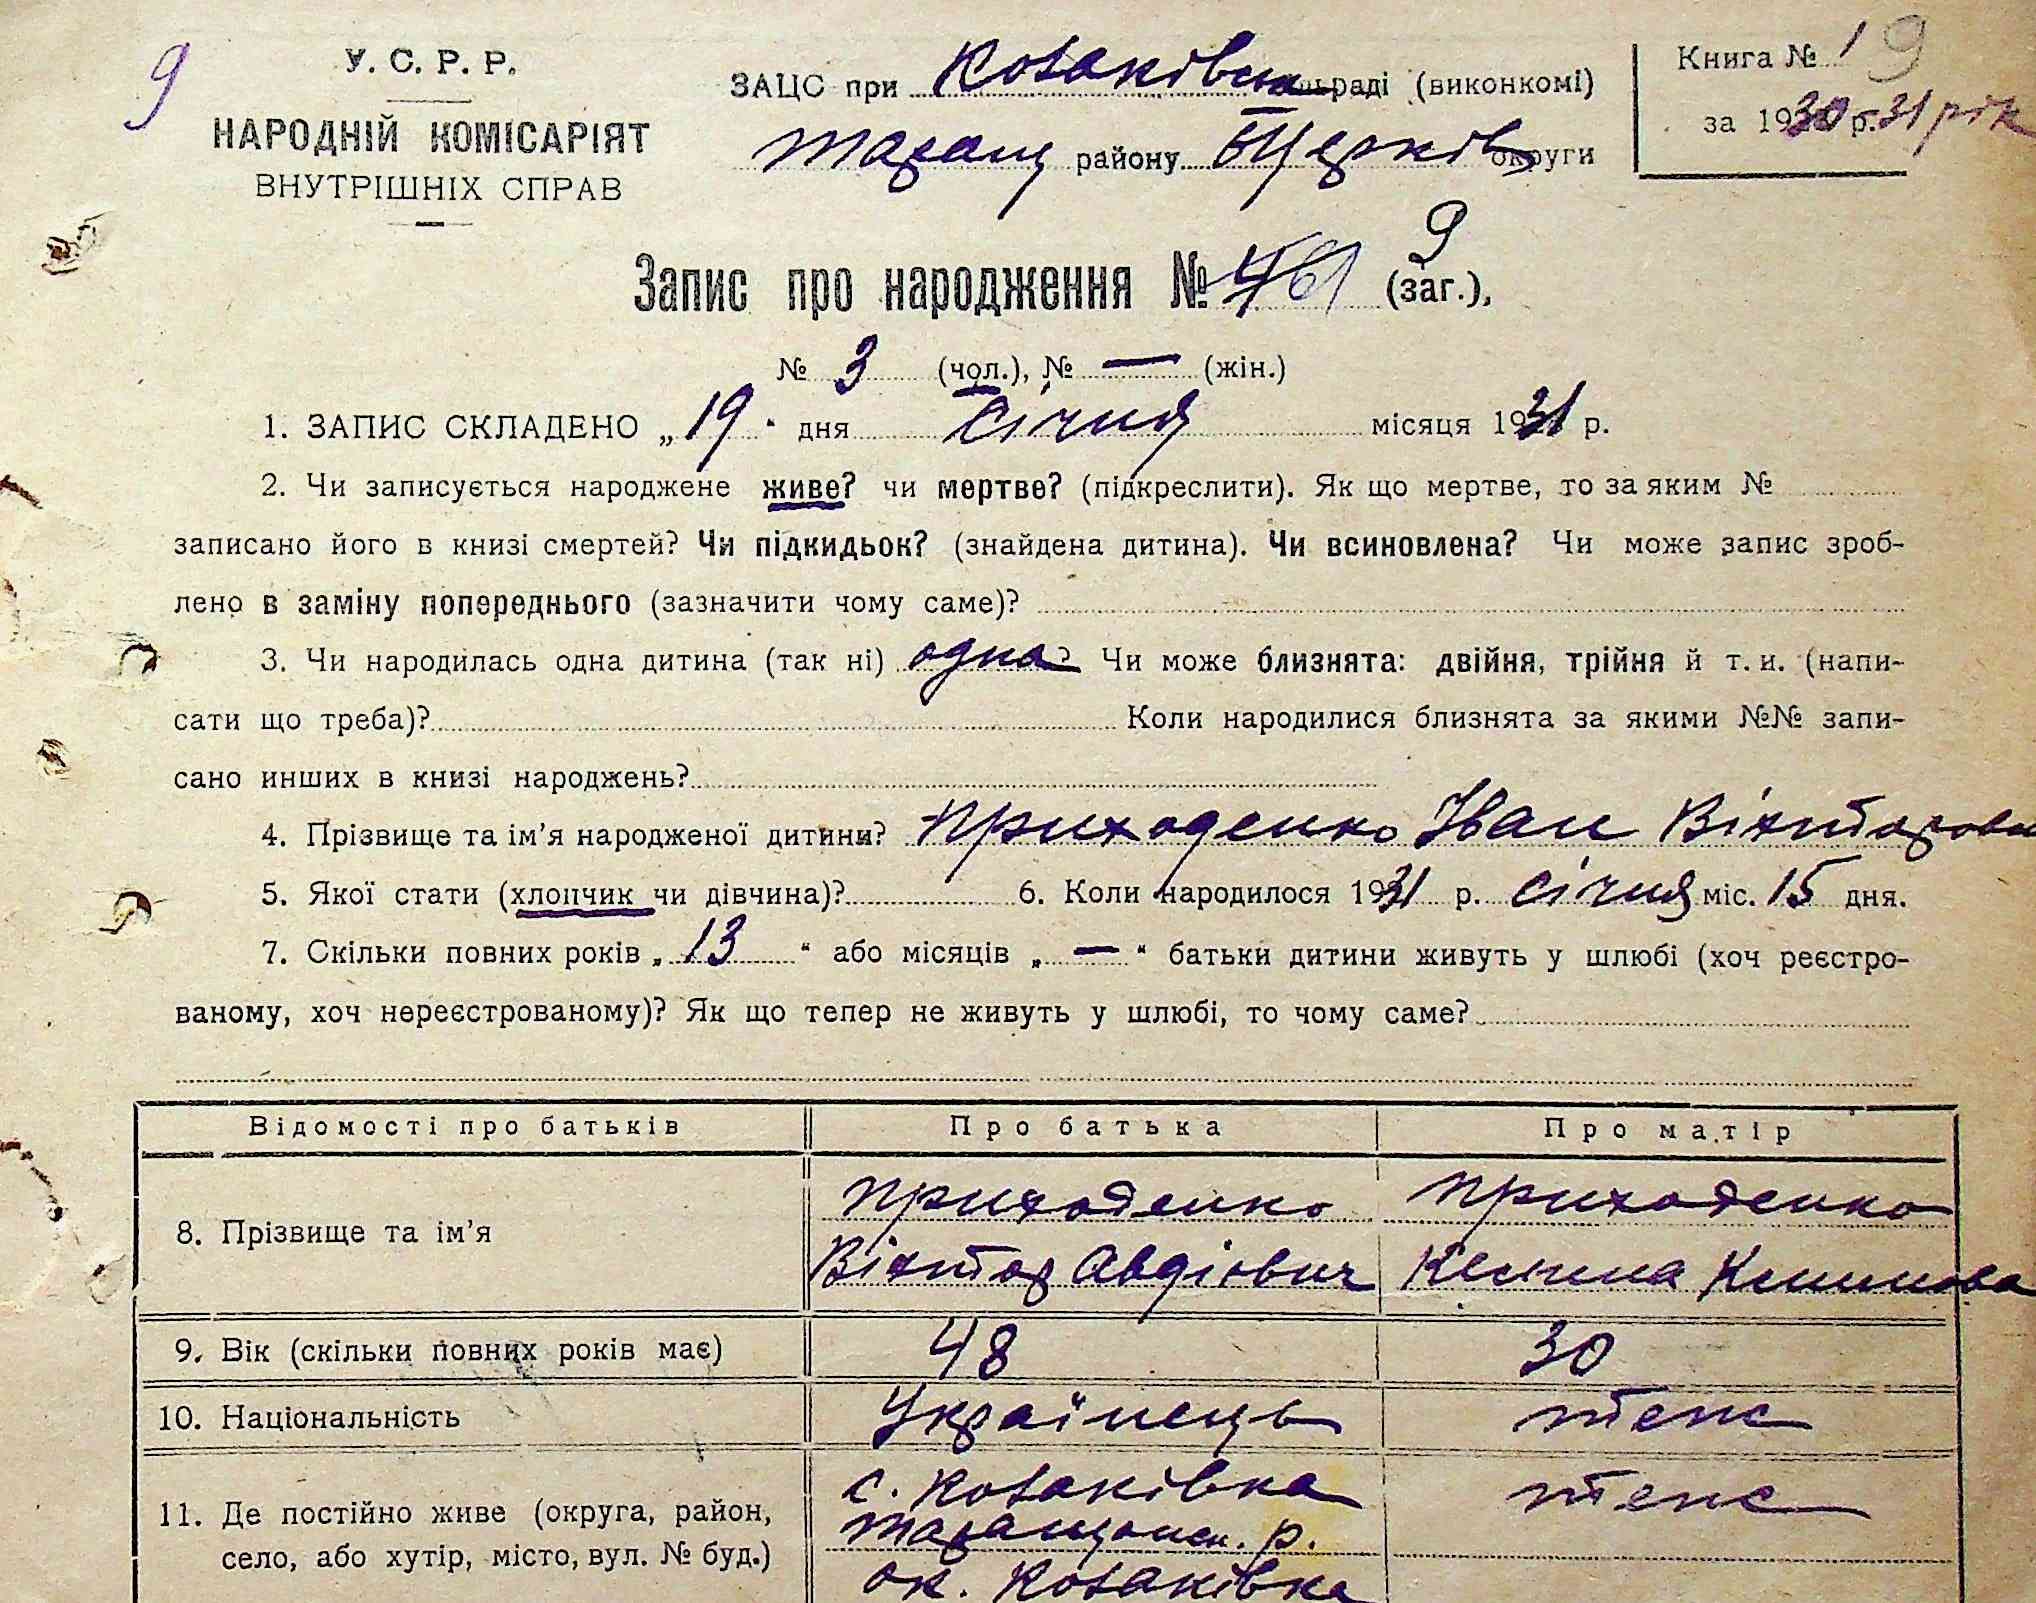 9
У. С. Р. Р.
НАРОДНІЙ КОМІСАРІЯТ
ВНУТРІШНІХ СПРАВ
ЗАЦС при Козаківськ раді (виконкомі)
Таращ району БЦерків округи
Книга № 1 9
за 1930 р. 31 рік
Запис про народження № 461 9 (заг.),
№ 3 (чол.), № — (жін.)
1. ЗАПИС СКЛАДЕНО „19" дня Січня місяця 1931 р.
2. Чи записується народжене живе? чи мертве? (підкреслити). Як що мертве, то за яким №
записано його в книзі смертей? Чи підкидьок? (знайдена дитина). Чи всиновлена? Чи може запис зроб-
лено в заміну попереднього (зазначити чому саме)?
3. Чи народилась одна дитина (так ні) одна? Чи може близнята: двійня, трійня й т. и. (напи-
сати що треба)? Коли народилися близнята за якими №№ запи-
сано инших в книзі народжень?
4. Прізвище та ім'я народженої дитини? Приходенко Іван Вікторови
5. Якої стати (хлопчик чи дівчина)? 6. Коли народилося 1931 р. Січня міс. 15 дня.
7. Скільки повних років „13" або місяців „—" батьки дитини живуть у шлюбі (хоч реєстро-
ваному, хоч нереєстрованому)? Як що тепер не живуть у шлюбі, то чому саме?
Відомості про батьків Про батька Про матір
8. Прізвище та ім'я Приходенко Приходенко
Віктор Авдієвич
9. Вік (скільки повних років має) 48 30
10. Національність Українець теж
11. Де постійно живе (округа, район, с. Козаківка теж
село, або хутір, місто, вул. № буд.) Таращанськ. р.
ок. Козаківка